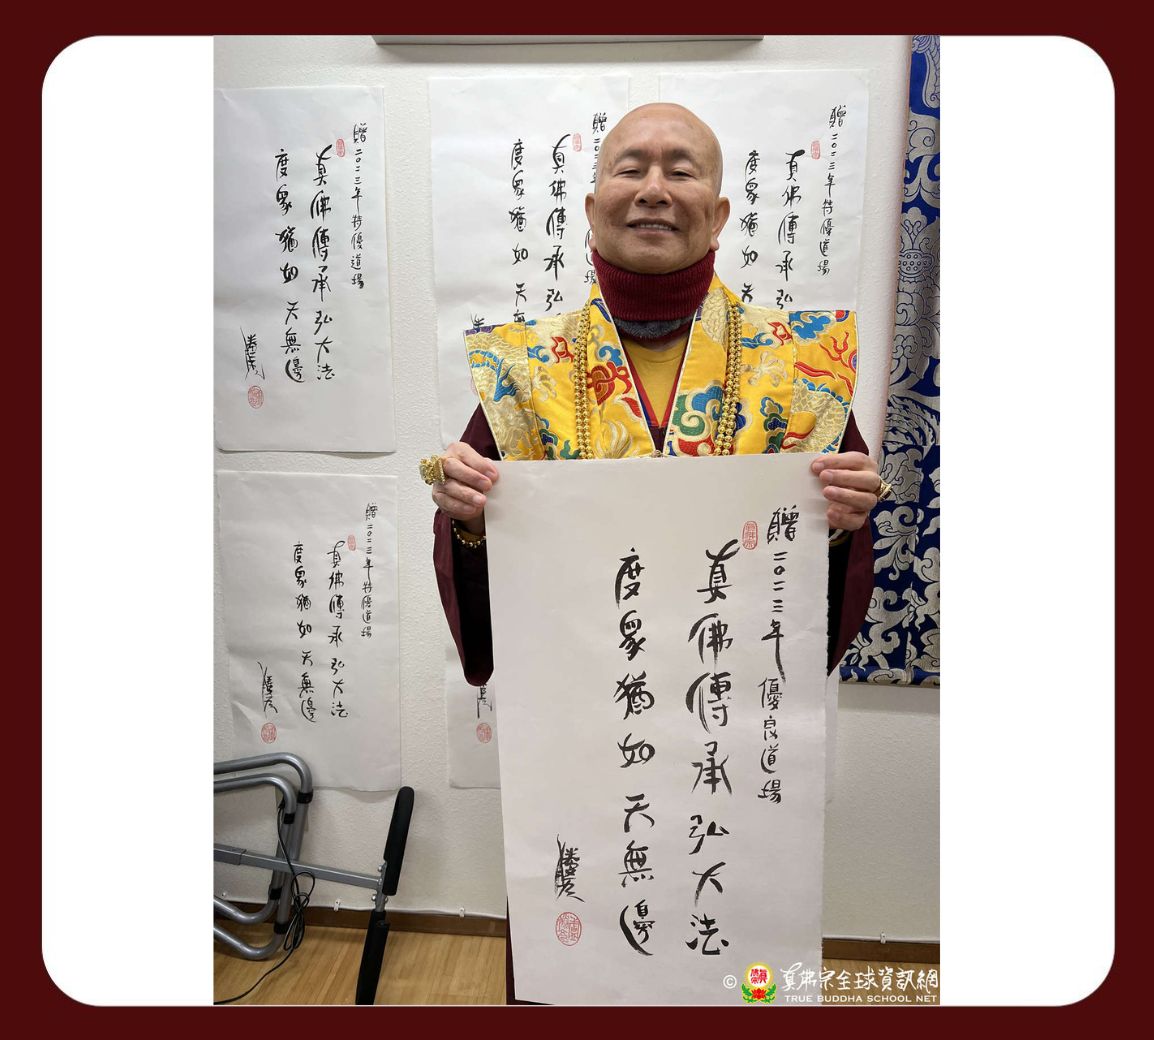 贈二〇二三年特優道場
真佛傳承弘大法
度眾猶如天無邊
贈二〇二三年
真佛傳承弘
度眾猶如天無
贈二〇二三年特優道場
真佛傳承弘
度眾猶如天
贈二〇二三年優良道場
真佛傳承弘大法
度眾猶如天無邊
贈二〇二三年特優道場
真佛傳承弘大法
度眾猶如天無邊
© 真佛宗全球資訊網
TRUE BUDDHA SCHOOL NET